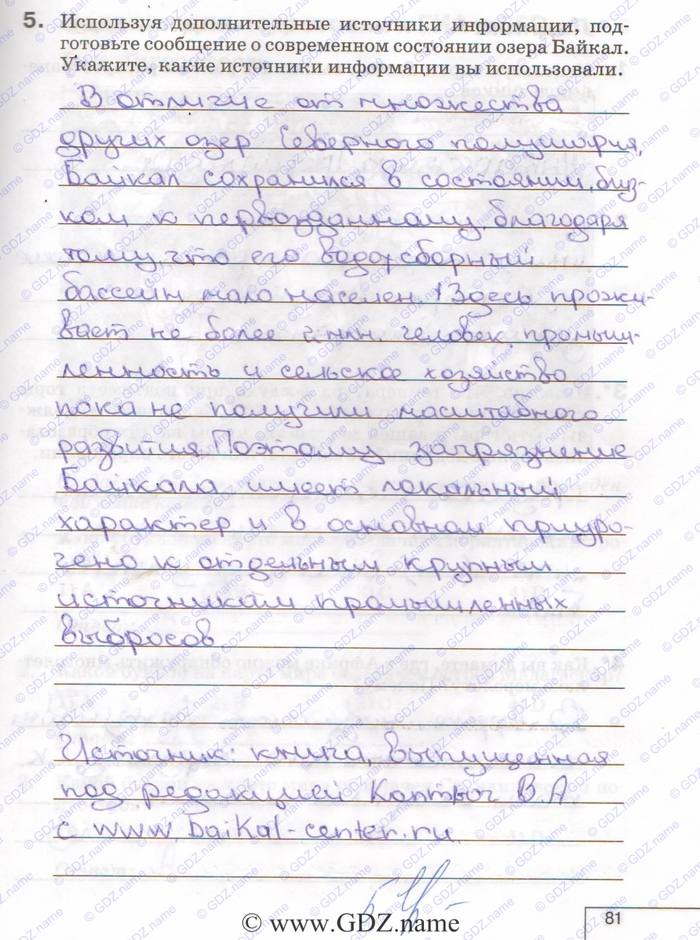 5. Используя дополнительные источники информации, под-
готовьте сообщение о современном состоянии озера Байкал.
Укажите, какие источники информации вы использовали.
В отличие от множества
других озер Северного полушария,
Байкал сохранился в состоянии, близ-
ком к первозданному, благодаря
тому, что его водосборный
бассейн мало населен. Здесь прожи-
вает не более 2 млн. человек, промыш-
ленность и сельское хозяйство
пока не получили масштабного
развития. Поэтому загрязнение
Байкала имеет локальный
характер и в основном приуро-
чено к отдельным крупным
источникам промышленных
выбросов
Источник: книга, выпущенная
под редакцией Коптюг В А
с www.baikal-center.ru
81
© www.GDZ.name